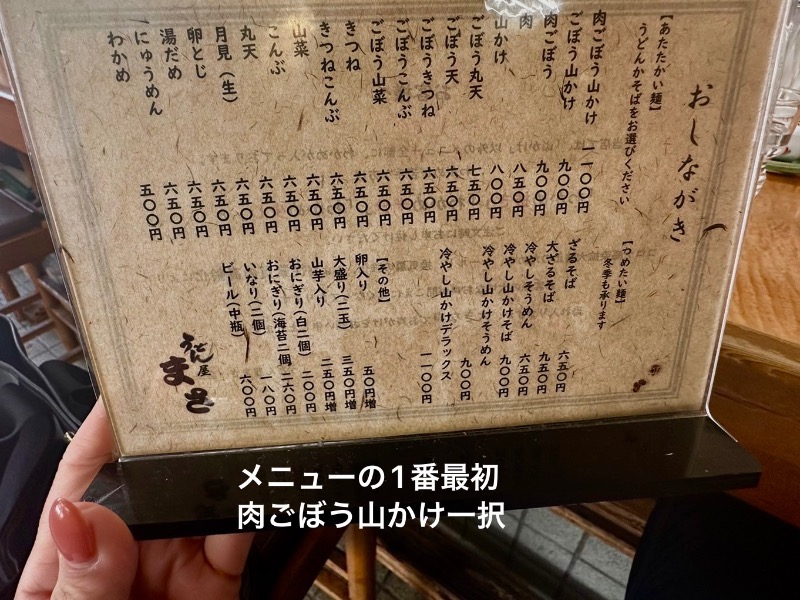 おしながき
【あたたかい麺】
うどんかそばをお選びください
肉ごぼう山かけ 一一〇〇円
ごぼう山かけ 九〇〇円
肉ごぼう 九〇〇円
肉 八五〇円
山かけ 八〇〇円
ごぼう丸天 七五〇円
ごぼう天 六五〇円
ごぼうきつね 六五〇円
ごぼうこんぶ 六五〇円
ごぼう山菜 六五〇円
きつね 六五〇円
きつねこんぶ 六五〇円
山菜 六五〇円
こんぶ 六五〇円
丸天 六五〇円
月見（生） 六五〇円
卵とじ 六五〇円
湯だめ 六五〇円
にゅうめん 六五〇円
わかめ 五〇〇円
【つめたい麺】
冬季も承ります
ざるそば 六五〇円
大ざるそば 九五〇円
冷やしそうめん 六五〇円
冷やし山かけそば 九〇〇円
冷やし山かけそうめん 九〇〇円
冷やし山かけデラックス 一一〇〇円
【その他】
卵入り 五〇円増
大盛り(二玉) 三五〇円増
山芋入り 二五〇円増
おにぎり(白二個) 二〇〇円
おにぎり(海苔二個) 二六〇円
いなり(二個) 一八〇円
ビール(中瓶) 六〇〇円
うどん屋
まさ
メニューの1番最初
肉ごぼう山かけ一択